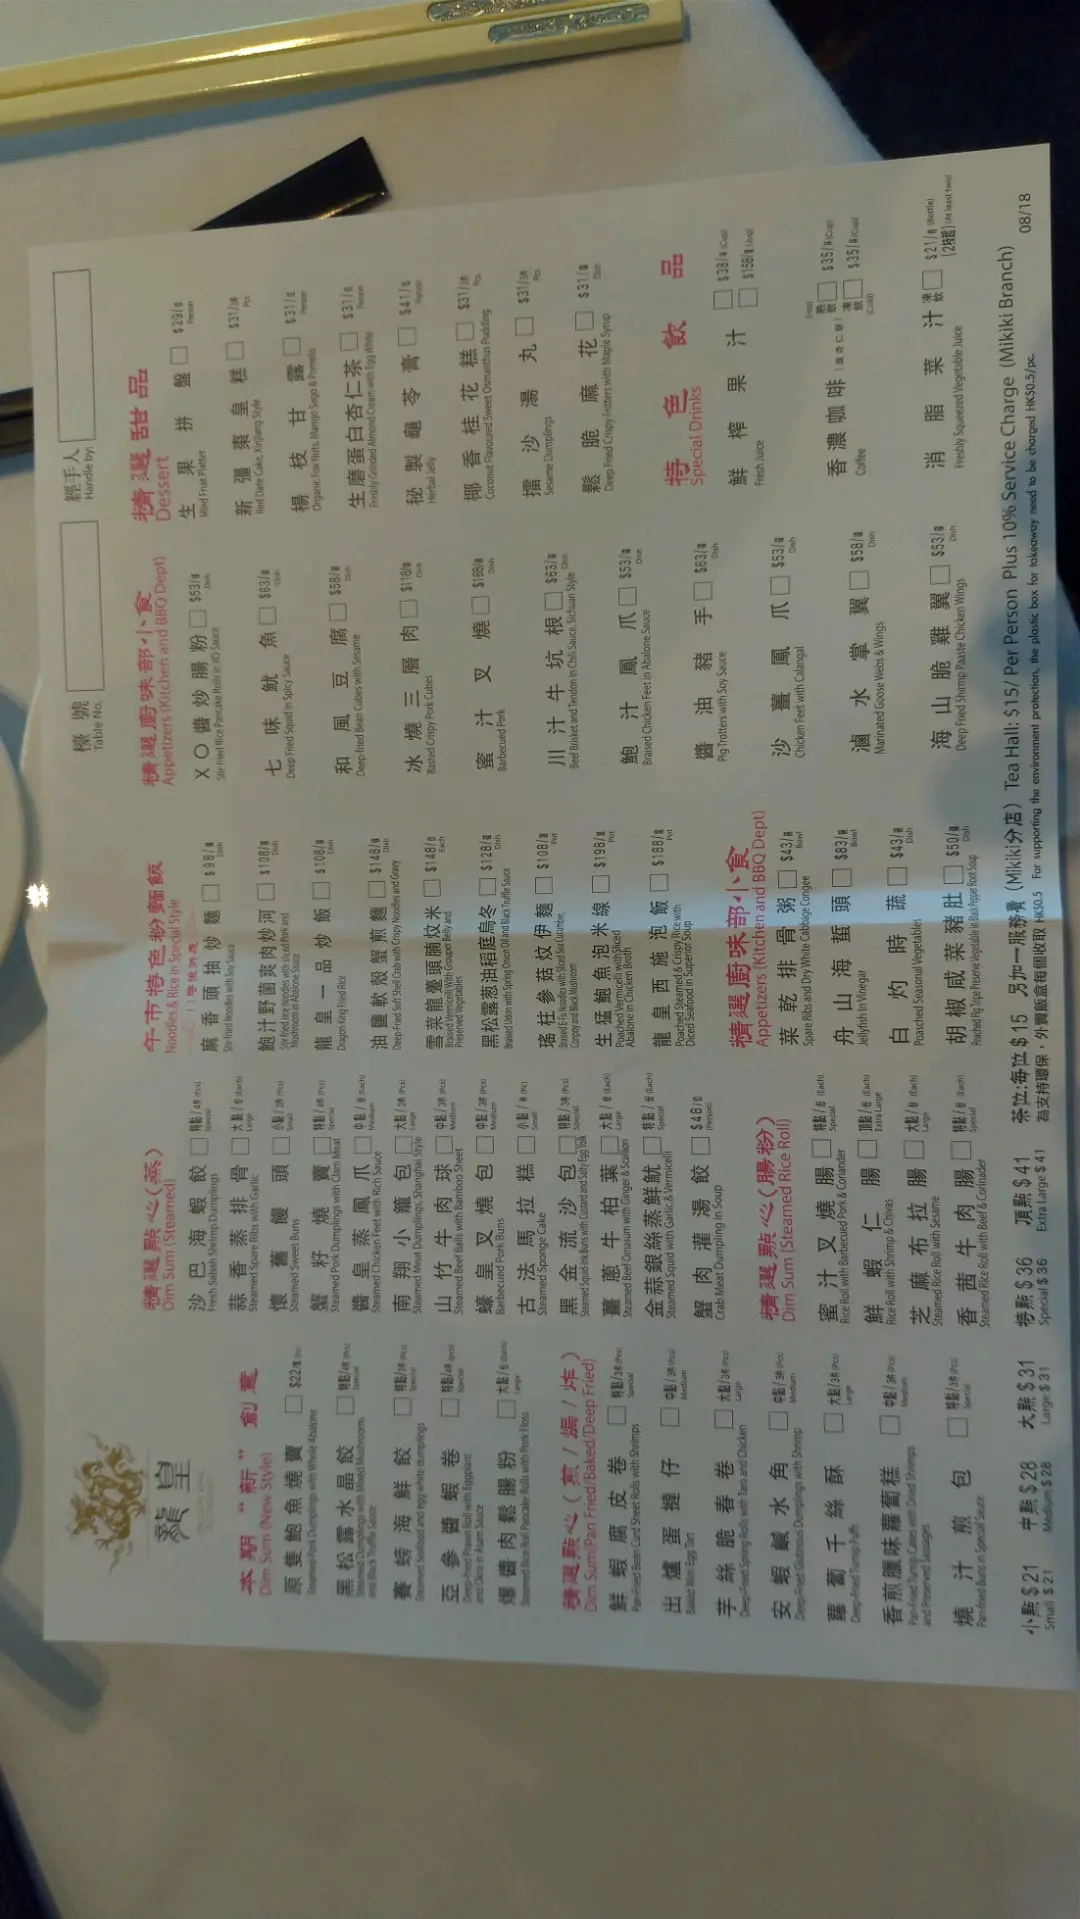 龍皇
檯 號
Table No.
經手人
Handle by:
本期“新”創意
Dim Sum (New Style)
原隻鮑魚燒賣 $22/
Steamed Pork Dumplings with Whole Abalone
黑松露水晶餃 特點/
Steamed Dumplings with Mixed Mushrooms
and Black Truffle Sauce
Special
賽螃海鮮餃 特點/3件(Pcs)
Steamed Seafood and egg white dumplings
Special
亞參醬蝦卷 特點/4件(pcs)
Deep-fried Prawn Roll with Eggplant
and Okra in Asam Sauce
Special
爆醬肉鬆腸粉 大點/份(Each)
Steamed Rice Roll Pancake Rolls with Pork Floss
Large
精選點心(煎/焗/炸)
Dim Sum(Pan Fried/Baked/Deep Fried)
鮮蝦腐皮卷 特點/3件(Pcs)
Pan-Fried Bean Curd Sheet Rolls with Shrimps
Special
出爐蛋撻仔 中點/3件(Pcs)
Baked Mini Egg Tart
Medium
芋絲脆春卷 大點/3件(Pcs)
Deep-Fried Spring Rolls with Taro and Chicken
Large
安蝦鹹水角 中點/3件(Pcs)
Deep-Fried Glutinous Dumplings with Shrimp
Medium
蘿蔔千絲酥 大點/3件(Pcs)
Deep-Fried Turnip Puffs
Large
香煎臘味蘿蔔糕 中點/3件(Pcs)
Pan-Fried Turnip Cakes with Dried Shrimps
and Preserved Sausages
Medium
燒汁煎包 特點/3件(Pcs)
Pan-Fried Buns in Special Sauce
Special
精選點心(蒸)
Dim Sum (Steamed)
沙巴海蝦餃 特點/4件(Pcs)
Fresh Sabah Shrimp Dumplings
Special
蒜香蒸排骨 大點/份(Each)
Steamed Spare Ribs with Garlic
Large
懷舊饅頭 小點/3件(Pcs)
Steamed Sweet Buns
Small
蟹籽燒賣 特點/4件(Pcs)
Steamed Pork Dumplings with Clam Meat
Special
醬皇蒸鳳爪 中點/份(Each)
Steamed Chicken Feet with Rich Sauce
Medium
南翔小籠包 大點/3件(Pcs)
Steamed Meat Dumplings, Shanghai Style
Large
山竹牛肉球 中點/3件(Pcs)
Steamed Beef Balls with Bamboo Sheet
Medium
蠔皇叉燒包 中點/3件(Pcs)
Barbecued Pork Buns
Medium
古法馬拉糕 小點/件(Pc)
Steamed Sponge Cake
Small
黑金流沙包 特點/3件(Pcs)
Steamed Squid-Ink Buns with Custard and Salty Egg Yolk
Special
薑蔥牛柏葉 大點/份(Each)
Steamed Beef Omasum with Ginger & Scallion
Large
金蒜銀絲蒸鮮魷 特點/份(Each)
Steamed Squid with Garlic & Vermicelli
Special
蟹肉灌湯餃 $48/位
Crab Meat Dumpling In Soup
(Person)
精選點心(腸粉)
Dim Sum (Steamed Rice Roll)
蜜汁叉燒腸 特點/份(Each)
Rice Roll with Barbecued Pork & Coriander
Special
鮮蝦仁腸 頂點/份(Each)
Rice Roll with Shrimp & Chives
Extra Large
芝麻布拉腸 大點/份(Each)
Steamed Rice Roll with Sesame
Large
香茜牛肉腸 特點/份(Each)
Steamed Rice Roll with Beef & Corinader
Special
午市特色粉麵飯
Noodles & Rice in Special Style
麻香頭抽炒麵 $68/碟
Stir-fried Noodles with Soy Sauce
Dish
鮑汁野菌爽肉炒河 $108/碟
Stir-fried rice noodles with sliced Pork and
Mushroom in Abalone Sauce
Dish
龍皇一品炒飯 $108/碟
Dragon King Fried Rice
Dish
油鹽軟殼蟹煎麵 $148/碟
Deep-Fried Soft Shell Crab with Crispy Noodles and Gravy
Dish
雪菜龍躉頭腩炆米 $148/份
Braised Vermicelli With Grouper Belly and
Preserved Vegetables
Each
黑松露葱油稻庭烏冬 $128/碟
Braised Udon with Spring Onion Oil and Black Truffle Sauce
Dish
瑤柱參菇炆伊麵 $108/
Braised E-Fu Noodles with Sliced Sea Cucumber,
Conpoy and Black Mushroom
Pot
生猛鮑魚泡米線 $198/
Poached Vermicelli with Sliced
Abalone in Chicken Broth
Pot
龍皇西施泡飯 $188/
Poached Steamed & Crispy Rice with
Diced Seafood in Superior Soup
Pot
精選廚味部小食
Appetizers (Kitchen and BBQ Dept)
菜乾排骨粥 $43/
Spare Ribs and Dry White Cabbage Congee
Bowl
舟山海蜇頭 $83/
Jellyfish in Vinegar
Bowl
白灼時蔬 $43/碟
Poached Seasonal Vegetables
Dish
胡椒咸菜豬肚 $50/碟
Poached Pig Tripe Preserve Vegetable in Black Pepper Root Soup
Dish
精選廚味部小食
Appetizers (Kitchen and BBQ Dept)
XO醬炒腸粉 $53/碟
Stir Fried Rice Pancake Rolls in XO Sauce
Dish
七味魷魚 $63/碟
Deep Fried Squid In Spicy Sauce
Dish
和風豆腐 $58/碟
Deep-fried Bean Cubes with Sesame
Dish
冰燒三層肉 $118/碟
Rasted Crispy Pork Cubes
Dish
蜜汁叉燒 $168/碟
Barbecued Pork
Dish
川汁牛坑根 $63/碟
Beef Brisket and Tendon in Chili Sauce, Sichuan Style
Dish
鮑汁鳳爪 $53/碟
Braised Chicken Feet in Abalone Sauce
Dish
醬油豬手 $63/碟
Pig Trotters with Soy Sauce
Dish
沙薑鳳爪 $53/碟
Chicken Feet with Calangal
Dish
滷水掌翼 $58/碟
Marinated Goose Webs & Wings
Dish
海山脆雞翼 $53/碟
Deep Fried Shrimp Paaste Chicken Wings
Dish
精選甜品
Dessert
生果拼盤 $29/位
Mixed Fruit Platter
Person
新彊棗皇糕 $31/3件
Red Date Cake, Xinjiang Style
Pcs
楊枝甘露 $31/位
Organic Fox Nuts, Mango Sago & Pomelo
Person
生磨蛋白杏仁茶 $31/位
Freshly Grinded Almond Cream with Egg White
Person
秘製龜苓膏 $41/位
Herbal Jelly
Person
椰香桂花糕 $31/3件
Coconut Flavoured Sweet Osmanthus Pudding
Pcs
擂沙湯丸 $31/3件
Sesame Dumplings
Pcs
鬆脆麻花 $31/碟
Deep Fried Crispy Fritters with Maple Syrup
Dish
特色飲品
Special Drinks
鮮榨果汁 $38/杯(Cup)
$158/(Jug)
Fresh Juice
香濃咖啡 (Hot) 熱飲 $35/杯(Cup)
凍飲 $35/杯(Cup)
(Cold)
Coffee
消脂菜汁 凍飲 $21/枝(Bottle)
(2枝起)(At least two)
Freshly Squeezed Vegetable Juice
小點$21 中點$28 大點$31 特點$36 頂點$41
Small $ 21 Medium $ 28 Large $ 31 Special $ 36 Extra Large $ 41
茶位:每位$15 另加一服務費 (Mikiki分店) Tea Hall: $15/ Per Person Plus 10% Service Charge (Mikiki Branch)
為支持環保，外賣飯盒每個收取 HK$0.5 For supporting the environment protection, the plastic box for takeaway need to be charged HK$0.5/pc.
08/18